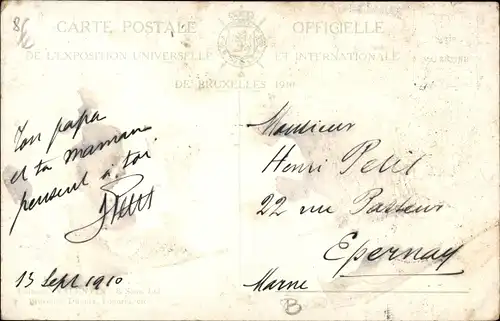 8/6
CARTE POSTALE OFFICIELLE
DE L'EXPOSITION UNIVERSELLE ET INTERNATIONALE
DE BRUXELLES 1910
Ton papa
et ta maman
pensent à toi.
JPetit
13 Sept 1910
Monsieur
Henri Petit
22 rue Pasteur
Epernay
Marne
B